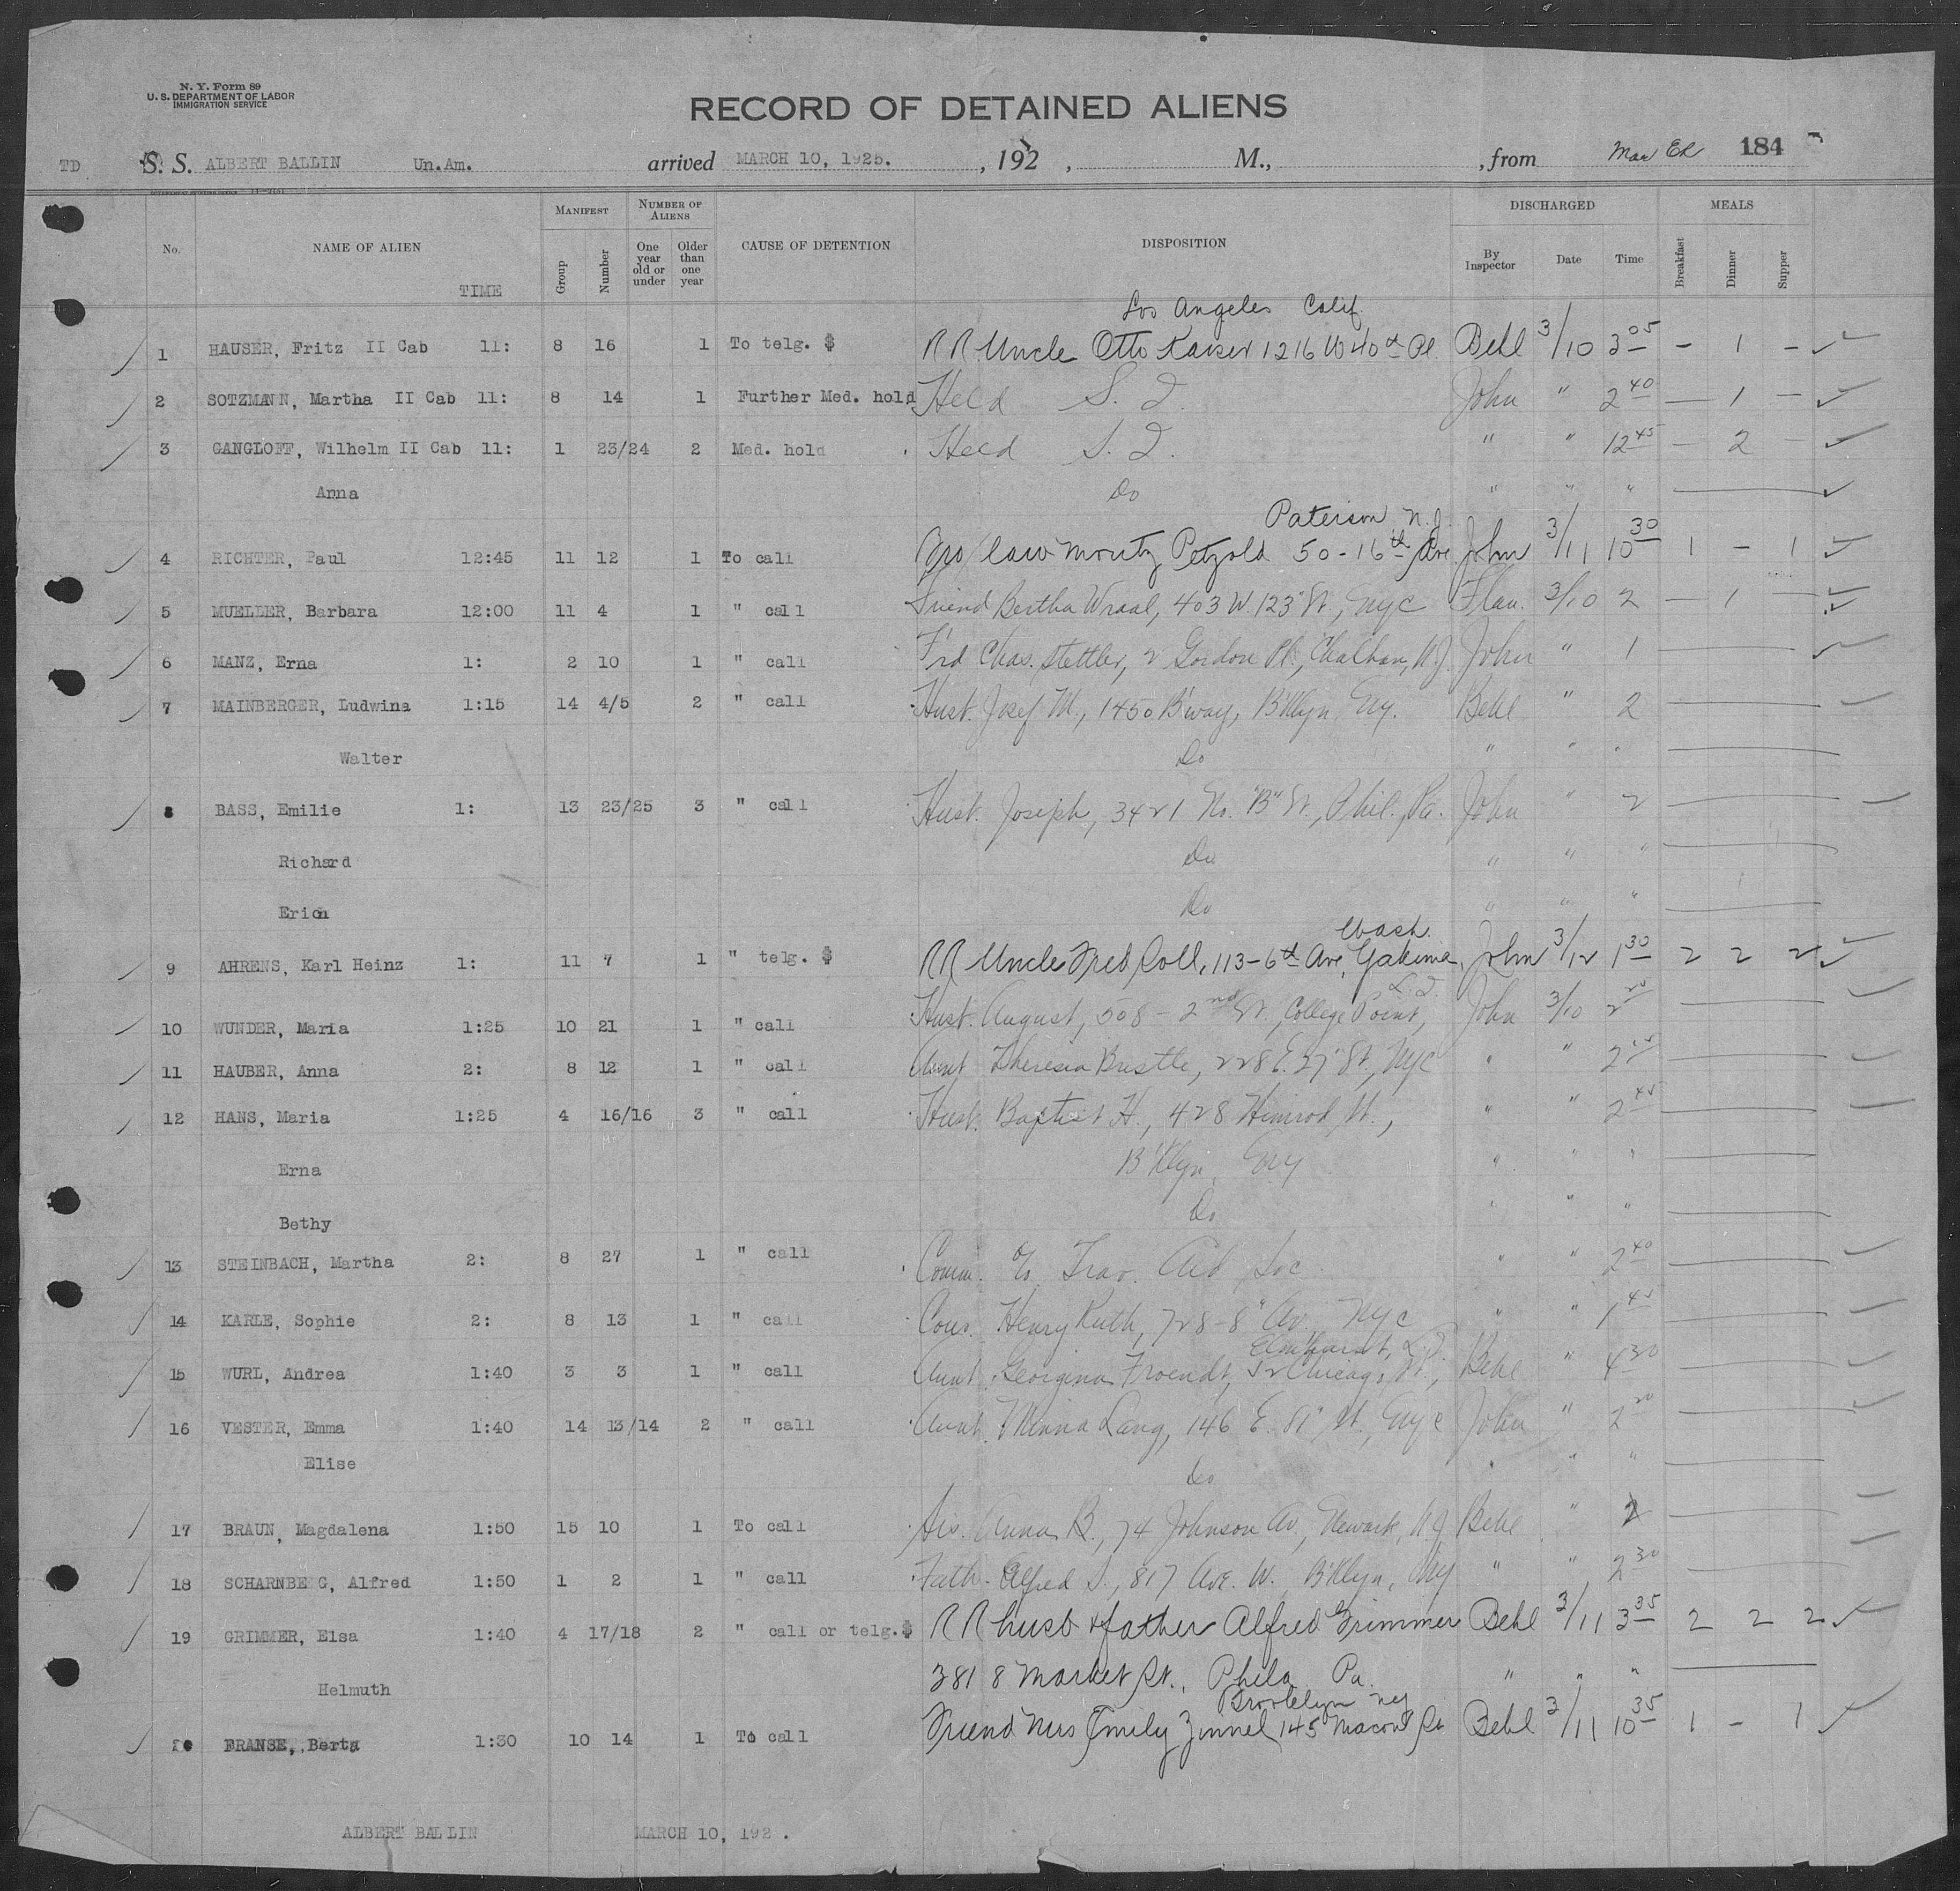 N. Y. Form 89
U. S. DEPARTMENT OF LABOR
IMMIGRATION SERVICE
RECORD OF DETAINED ALIENS
TD S. S. ALBERT BALLIN Un.Am. arrived MARCH 10, 1925. , 192 , M., , from 184
No. NAME OF ALIEN TIME MANIFEST Group Number NUMBER OF ALIENS One year old or under Older than one year CAUSE OF DETENTION DISPOSITION DISCHARGED By Inspector Date Time MEALS Breakfast Dinner Supper
Los Angeles Calif.
1 HAUSER, Fritz II Cab 11: 8 16 1 To telg. $ RR Uncle Otto Kaiser 1216 W 40th Pl. Behl 3/10 3 05 – 1 –
2 SOTZMANN, Martha II Cab 11: 8 14 1 Further Med. hold Held S. I. John " 2 40 – 1 –
3 GANGLOFF, Wilhelm II Cab 11: 1 23/24 2 Med. hold Held S. I. " " 12 45 – 2 –
Anna Do " " "
Paterson N.J.
4 RICHTER, Paul 12:45 11 12 1 To call Bro/law Moritz Petzold 50-16th Ave John 3/11 10 30 1 – 1
5 MUELLER, Barbara 12:00 11 4 1 " call Friend Bertha Wraal, 403 W. 123" St., NYC Flau. 3/10 2 – 1 –
6 MANZ, Erna 1: 2 10 1 " call F'rd Chas. Stettler, 2 Gordon Pl., Chatham, N.J. John " 1
7 MAINBERGER, Ludwina 1:15 14 4/5 2 " call Husb. Josef M., 1450 B'way, B'klyn, NY. Behl " 2
Walter Do " " "
8 BASS, Emilie 1: 13 23/25 3 " call Husb. Joseph, 3421 No. "B" St., Phil., Pa. John " 2
Richard Do " " "
Erich Do " " "
Wash.
9 AHRENS, Karl Heinz 1: 11 7 1 " telg. $ RR Uncle Fred Roll, 113-6th Ave, Yakima, John 3/12 1 30 2 2 2
L.I.
10 WUNDER, Maria 1:25 10 21 1 " call Husb. August, 508 - 2nd St., College Point, John 3/10 2 20
11 HAUBER, Anna 2: 8 12 1 " call Aunt Theresia Bustle, 228 E. 27" St., NYC " " 2
12 HANS, Maria 1:25 4 16/16 3 " call Husb. Baptist H., 428 Himrod St., " " 2 45
Erna B'klyn, NY " " "
Bethy Do " " "
13 STEINBACH, Martha 2: 8 27 1 " call Comm. c/o Trav. Aid Soc " " 2 40
14 KARLE, Sophie 2: 8 13 1 " call Cous. Henry Ruth, 728-8" Av. NYC " " 1 45
Elmhurst, L.I.
15 WURL, Andrea 1:40 3 3 1 " call Aunt Georgina Froendt, 52 Chicago St., Behl " 4 30
16 VESTER, Emma 1:40 14 13/14 2 " call Aunt Minna Lang, 146 E. 81" St., NYC John " 2 20
Elise Do " " "
17 BRAUN, Magdalena 1:50 15 10 1 To call Sis. Anna B., 74 Johnson Av, Newark, N.J Behl " 2
18 SCHARNBERG, Alfred 1:50 1 2 1 " call Fath. Alfred S., 817 Ave. W. B'klyn, NY " " 2 30
19 GRIMMER, Elsa 1:40 4 17/18 2 " call or telg.$ RR husb & father Alfred Grimmer Behl 3/11 3 35 2 2 2
Helmuth 3818 Market St., Phila Pa. " " "
Brooklyn NY
20 FRANSE, Berta 1:30 10 14 1 To call Friend Mrs Emily Zinnel 145 Macon St Behl 3/11 10 35 1 – 1
ALBERT BALLIN MARCH 10, 192 .